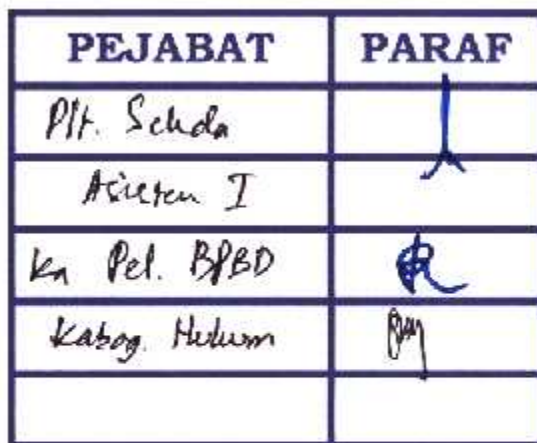 PEJABAT PARAF
Plt. Sekda
Asisten I
Ka Pel. BPBD
Kabag. Hukum